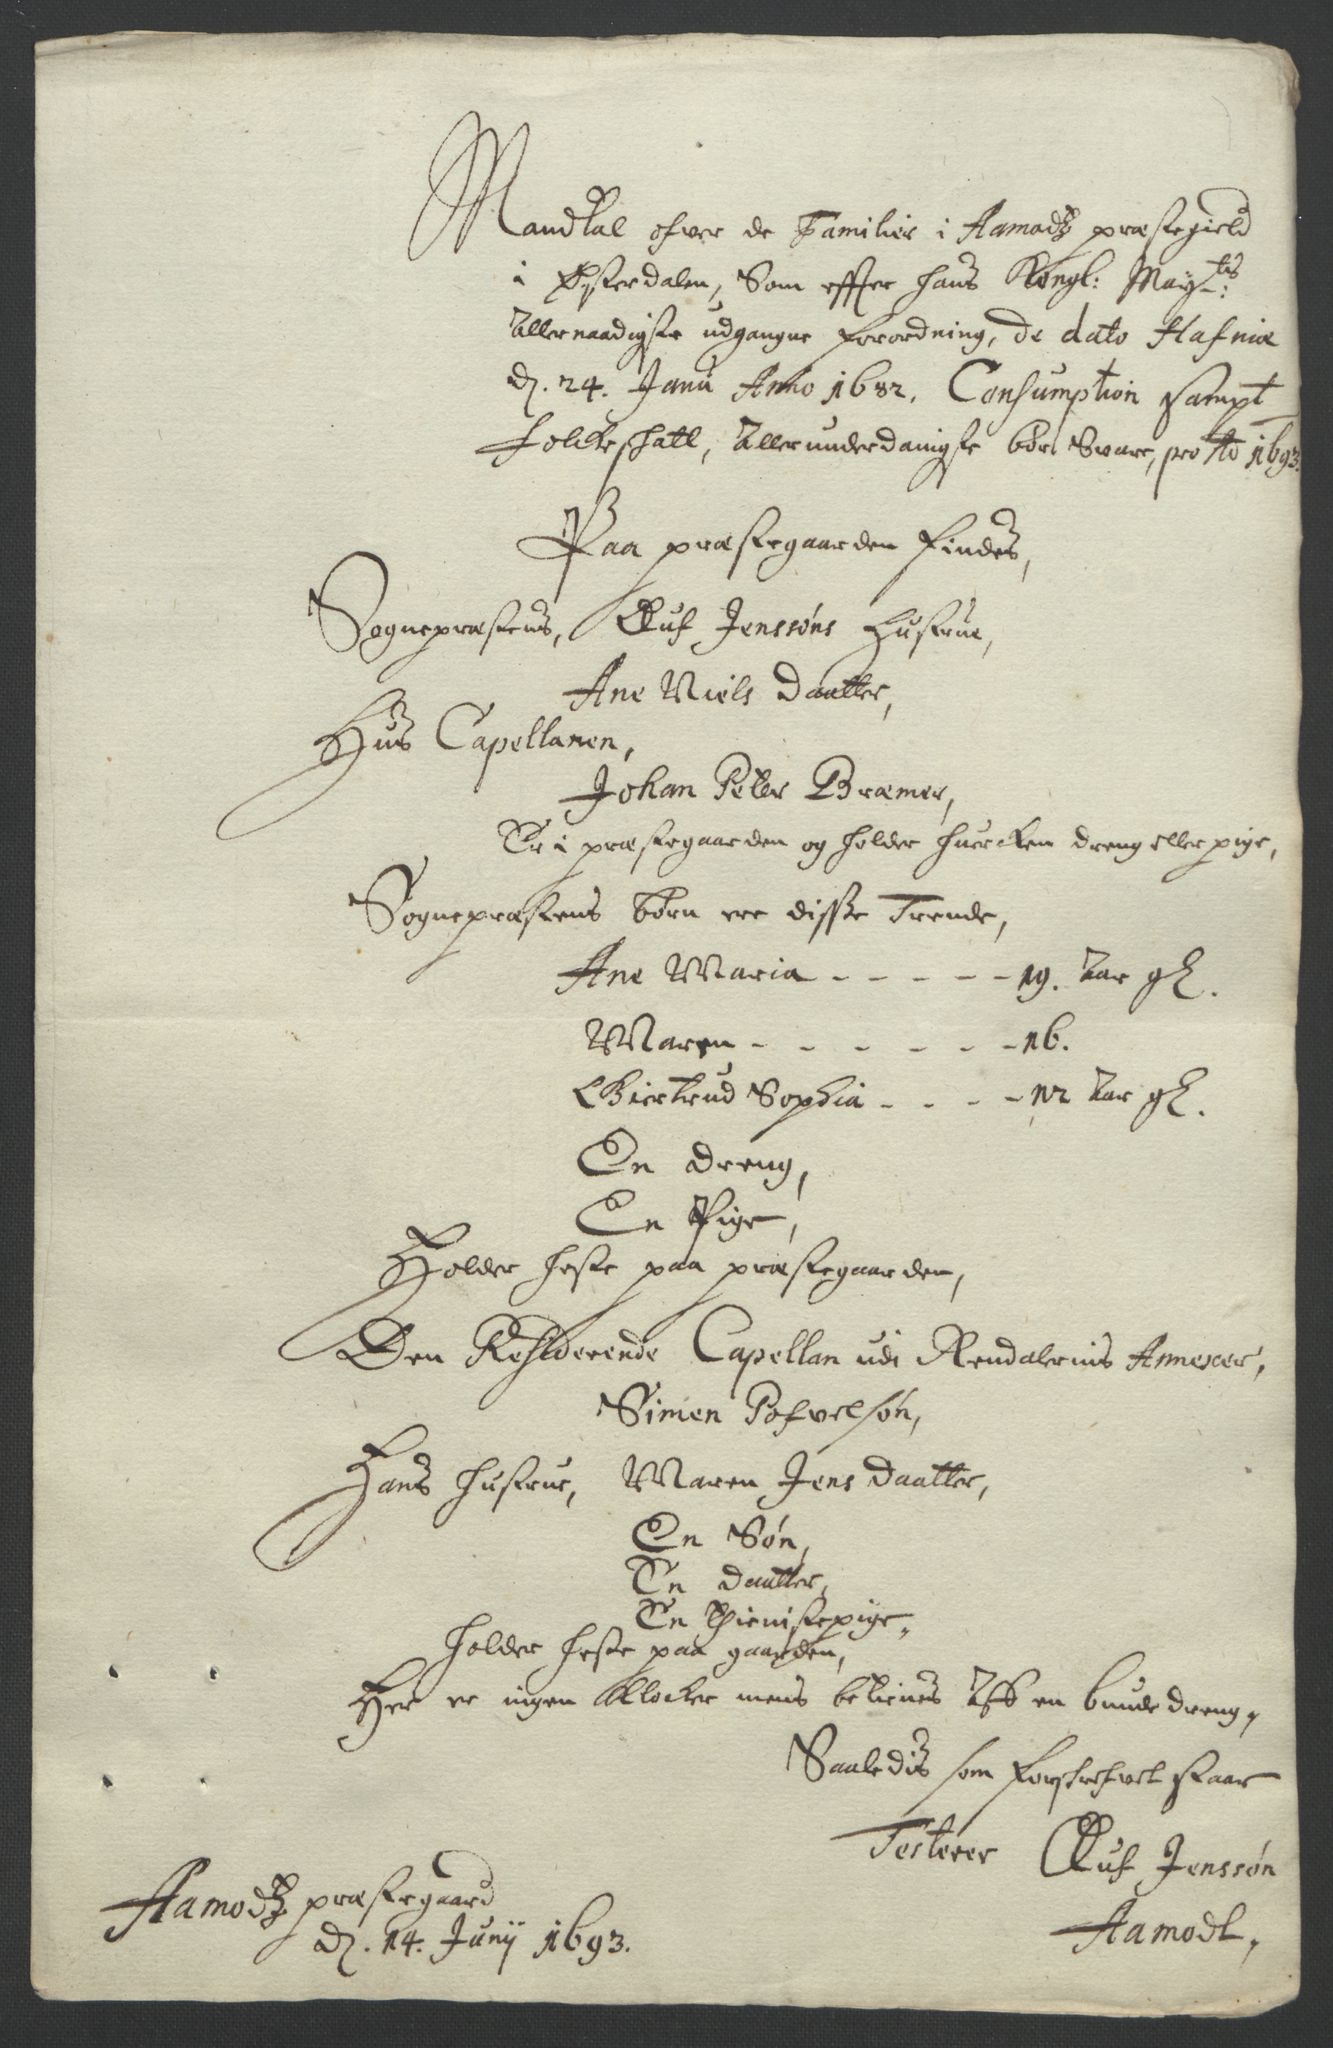 Mandtal ofver de Familier i Aamodtz præstegield
i Østerdalen, Som efter hans Kongl: May:ts
allernaadigste udgangne forordning, de dato Hafniæ
d. 24. Janu Anno 1682. Consumption sampt
folckeskatt, allerunderdanigst bør Svare, pro Ao 1693.
Paa præstegaarden findes,
Sognepræstens, Oluf Jenssøns hustrue,
Ane Niels daatter,
Hus Capellanen,
Johan Peter Bræmer,
Er i præstegaarden og holder huercken dreng eller pige,
Sognepræstens børn ere disse Trende,
Ane Maria - - - - - 19. aar gl.
Maren - - - - - - 16.
Giertrud Sophia - - - - 12 aar gl.
En dreng,
En Pige,
Holder heste paa præstegaarden,
Den Residerende Capellan udi Rendalernis Annexer,
Simen Pofvelsøn,
Hans hustrue, Maren Jens daatter,
En Søn,
En daatter,
En thienistepige,
holder heste paa gaarden,
Her er ingen Klocker mens betienes aff en bunde dreng,
Saaledis som forskrefvet staar
Testerer Oluf Jenssøn
Aamodt,
Aamodtz præstegaard
d. 14. Junij 1693.